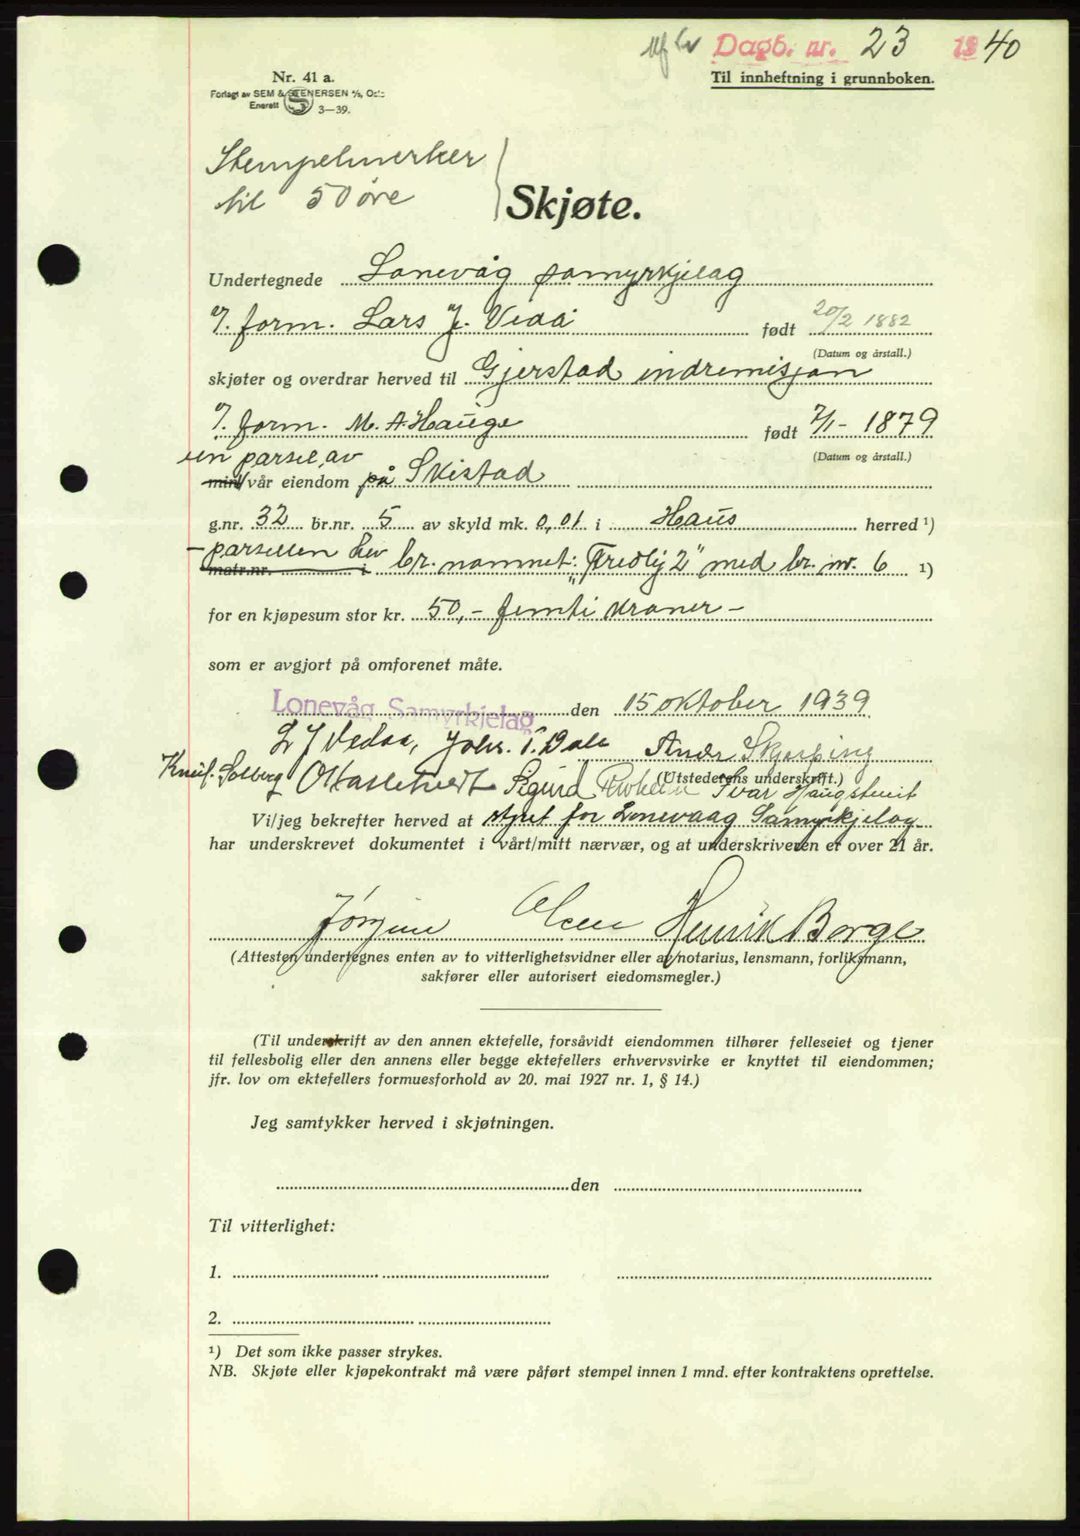 Dagb. nr. 23 1940
Til innheftning i grunnboken.
Nr. 41 a.
Forlagt av SEM & STENERSEN A/S, Oslo
Enerett S 3—39.
Stempelmerker
til 50 øre
Skjøte.
Undertegnede Lonevåg samyrkjelag
v/ form. Lars J. Vedå født 20/2 1882
(Datum og årstall.)
skjøter og overdrar herved til Gjerstad indremisjon
v/ form. M. A. Hauge født 7/1- 1879
(Datum og årstall.)
en parsel av
min/vår eiendom på Skistad
g.nr. 32 br.nr. 5 av skyld mk. 0,01 i Haus herred ¹)
- parsellen hev br. namnet: „Fredly 2" med br. nr. 6 ¹)
matr.nr. i
for en kjøpesum stor kr. 50,- femti kroner -
som er avgjort på omforenet måte.
Lonevåg Samyrkjelag den 15 oktober 1939
L J Vedaa, Johs. T. Dale Andr Skjerping
Knut Solberg O Hasletveit Sigurd Ivar Haugstveit
(Utstederens underskrift.)
Vi/jeg bekrefter herved at styret for Lonevaag Samyrkjelag
har underskrevet dokumentet i vårt/mitt nærvær, og at underskriveren er over 21 år.
Jørgine Olsen Henrik Borge
(Attesten undertegnes enten av to vitterlighetsvidner eller av notarius, lensmann, forliksmann,
sakfører eller autorisert eiedomsmegler.)
(Til underskrift av den annen ektefelle, forsåvidt eiendommen tilhører felleseiet og tjener
til fellesbolig eller den annens eller begge ektefellers erhvervsvirke er knyttet til eiendommen;
jfr. lov om ektefellers formuesforhold av 20. mai 1927 nr. 1, § 14.)
Jeg samtykker herved i skjøtningen.
den
Til vitterlighet:
1.
2.
¹) Det som ikke passer strykes.
NB. Skjøte eller kjøpekontrakt må være påført stempel innen 1 mnd. efter kontraktens oprettelse.